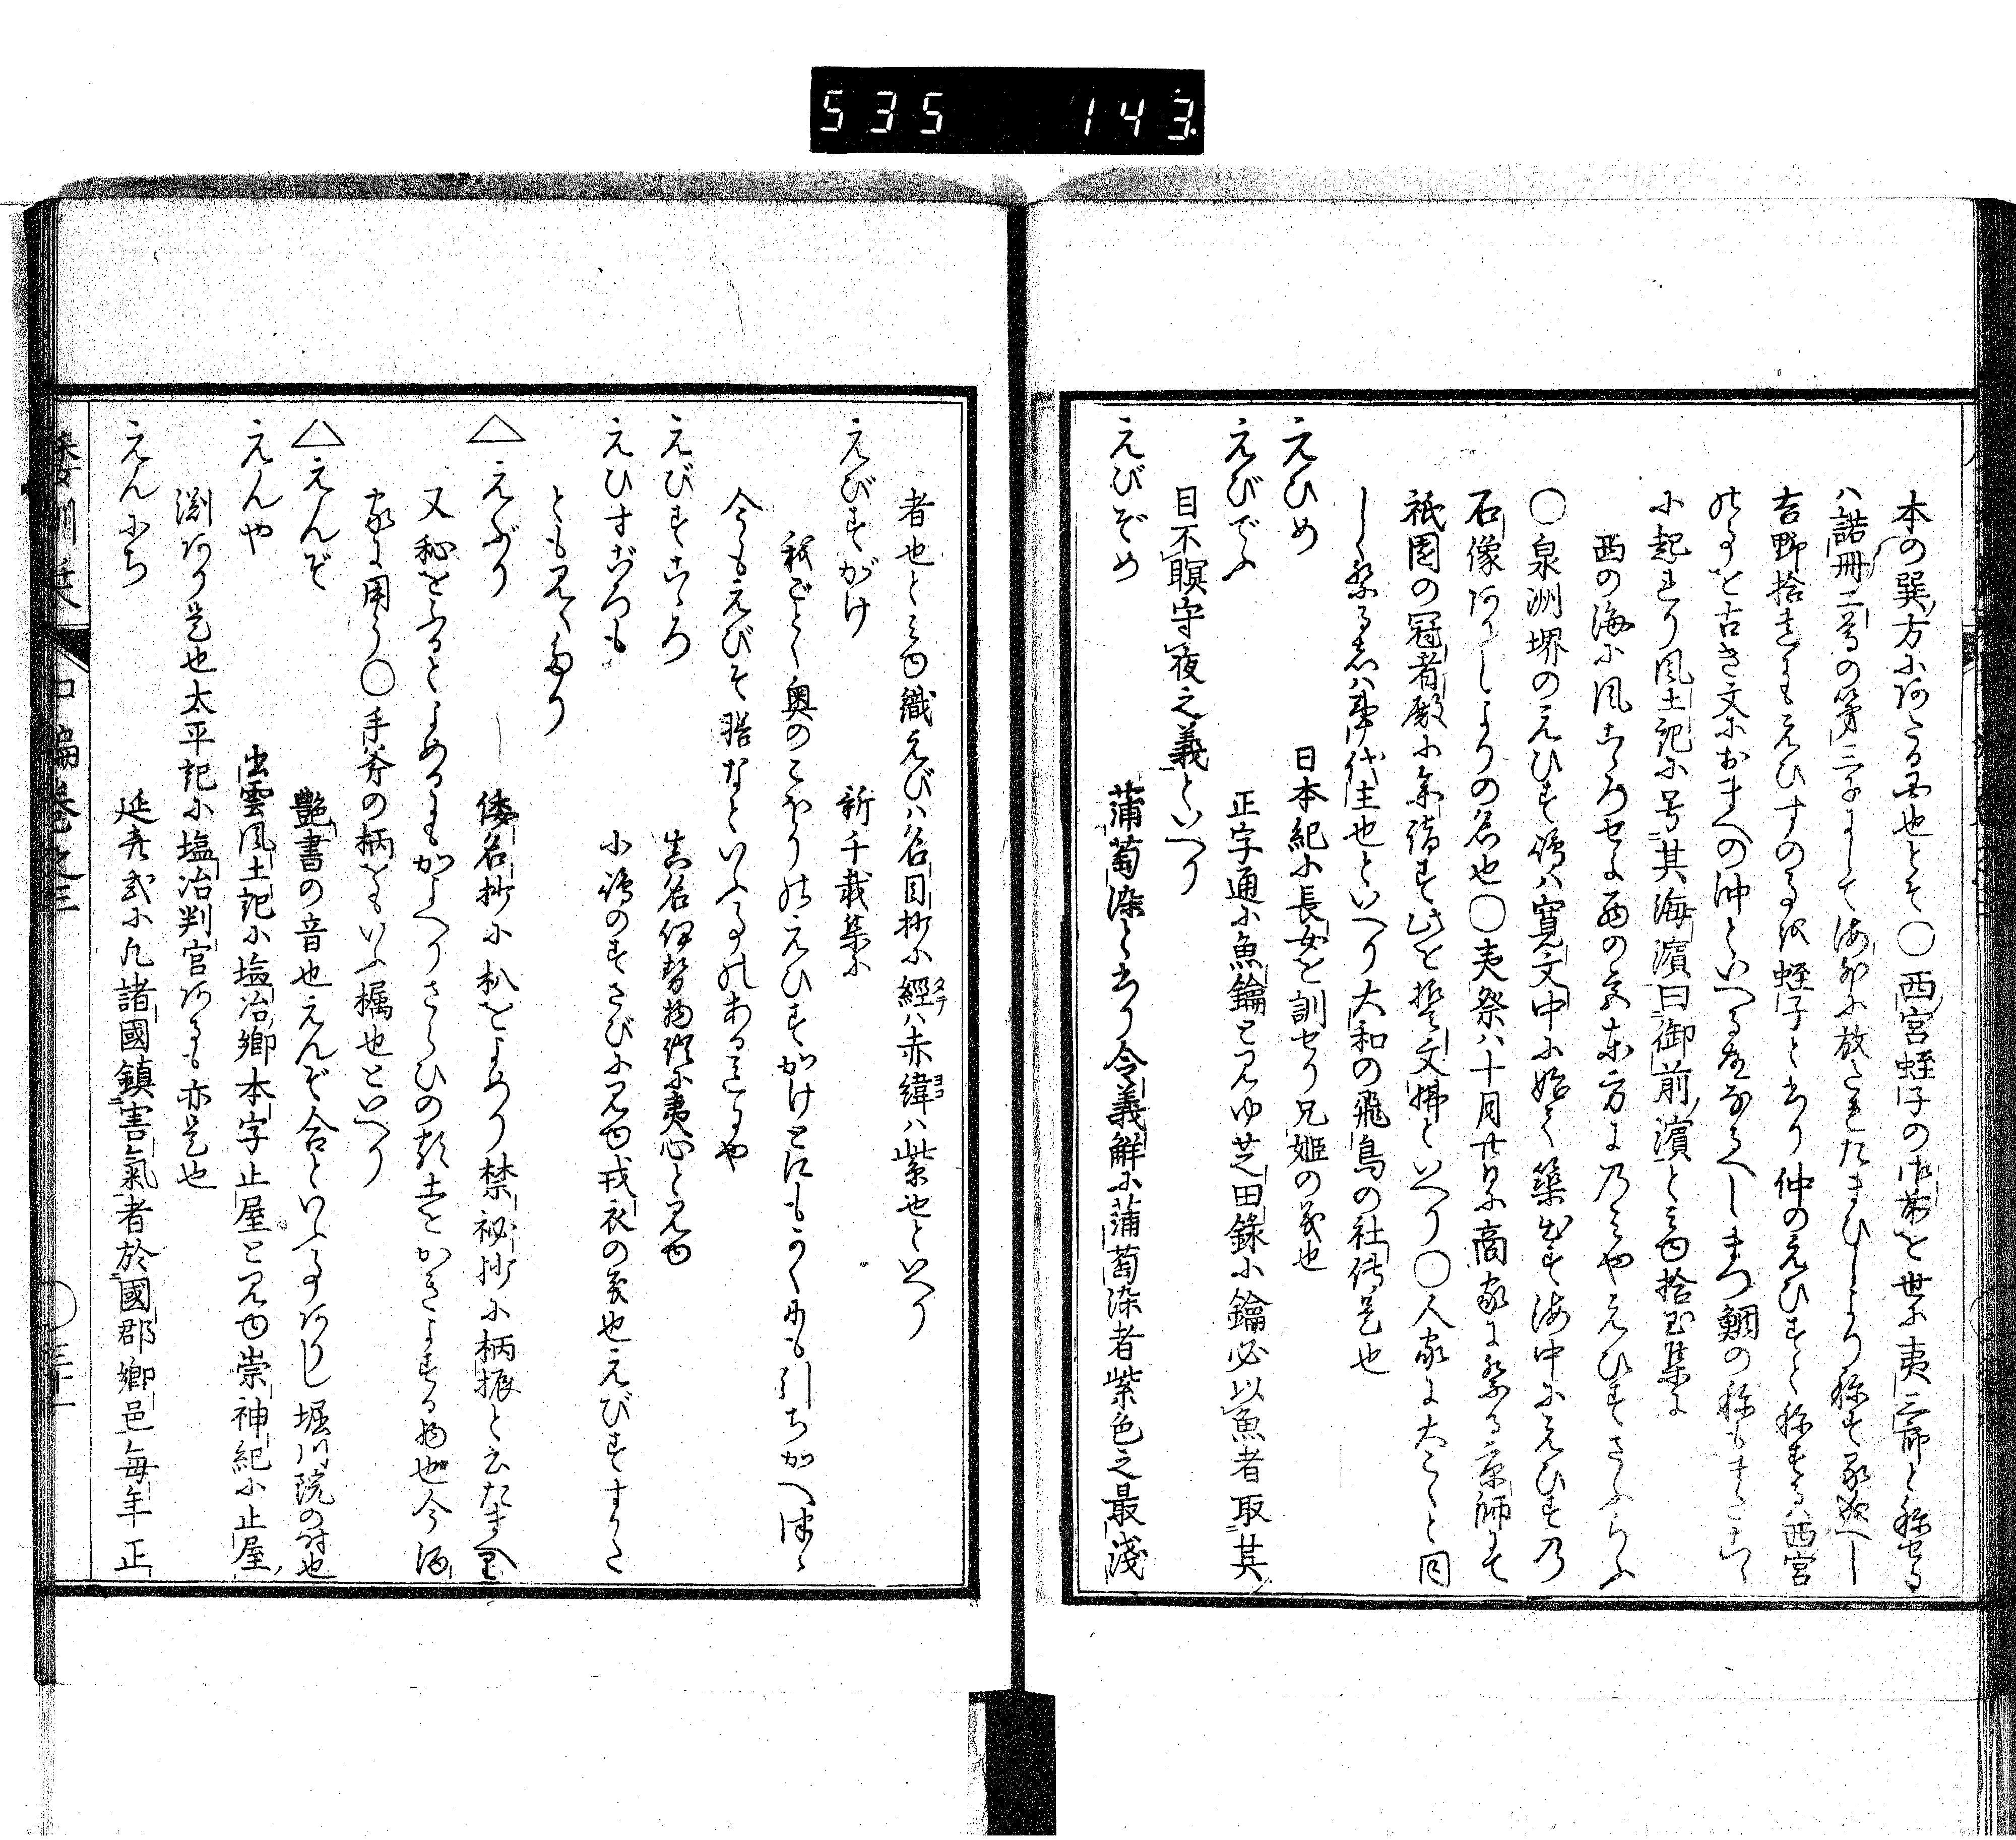 535 143
本の巽方にあたる国也とそ〇西宮蛭子の御事を世に夷三郎と称せる
ハ諾冊二尊の第三子にして海部に放たれたまひしより称す成へし
吉野拾遺にもえひすのる蛭子と書り仲のえひすと称するハ西宮
のことを古き文におまへの沖といへるなるへしまつ鯛の称もまたこゝ
に起れり風土記に号其海濱曰御前濱と見ゆ拾玉集に
西の海に風こゝろせよ西の宮東方にのみやえひすさふらふ
〇泉洲堺のえひす嶋ハ寛文中に始て築出す海中にえひすの
石像ありしよりの名也〇夷祭ハ十月廿日に商家に祭る京師にて
祇園の冠者殿に参詣す此を誓文拂といへり〇人家に大こくと同
しく祭る志ハ事代主也といへり大和の飛鳥の社傳是也
えひめ 日本紀に長女を訓せり兄姫の義也
えびでふ 正字通に魚鑰と見ゆ芝田録に鑰必以魚者取其
目不瞑守夜之義といへり
えびぞめ 蒲萄染と書り令義解に蒲萄染者紫色之最淺
者也と見ゆ織えびハ名目抄に經タテハ赤緯ヨコハ紫也といへり
えびすがけ 新千載集に
我ごとく奥のこほりのえひすがけとにもかくにも引ちがへつゝ
今もえびす膳なといふ事のあるにや
えびすこゝろ 真名伊勢物語に夷心と見ゆ
えひすごろも 小嶋のすさびに見ゆ戎衣の義也えびすすかた
とも見えたり
△えぶり 倭名抄に朳をよめり禁祕抄に柄振と云たき
又秘をふるとよめるにもかよへりさらひの類土をかきよする物也今酒
家に用う〇手斧の柄をもいふ欘也といへり
△えんぞ 艶書の音也えんぞ合といふ事ありし堀川院の時也
えんや 出雲風土記に塩冶郷本字止屋と見ゆ崇神紀に止屋
淵あり是也太平記に塩冶判官あるも亦是也
えんにち 延喜式に凡諸國鎮害氣者於國郡郷邑毎年正